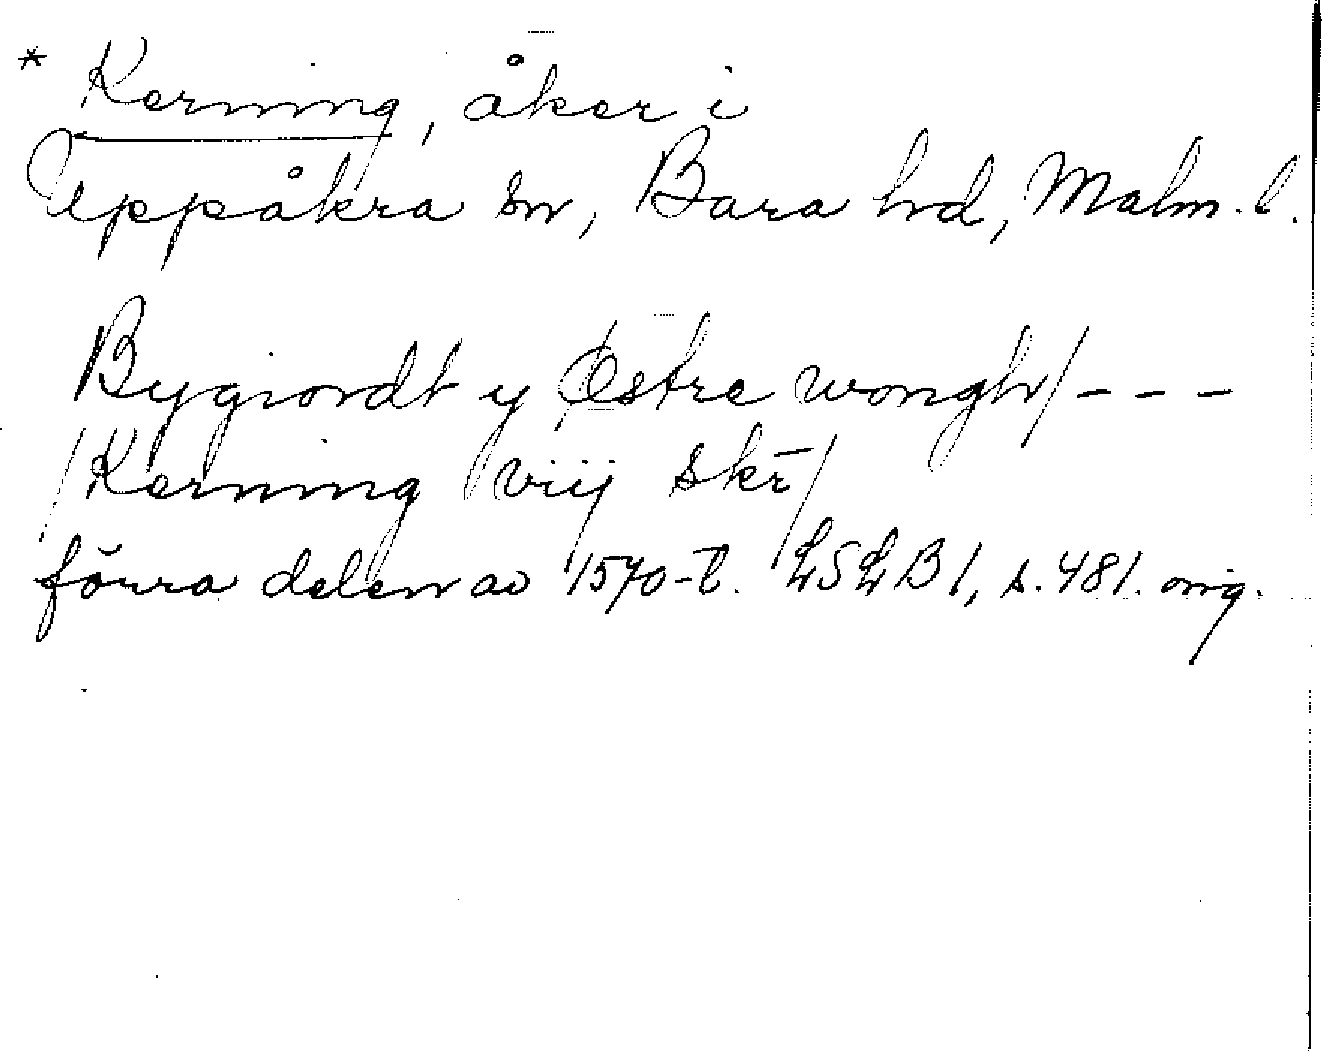 * Kerning, åker i
Uppåkra sn, Bara hd, Malm. l.
Bygiordt y Østre wongh/ - - -
/Kerning viij skr̄/
förra delen av 1570-t. LSLB1, s. 481. orig.